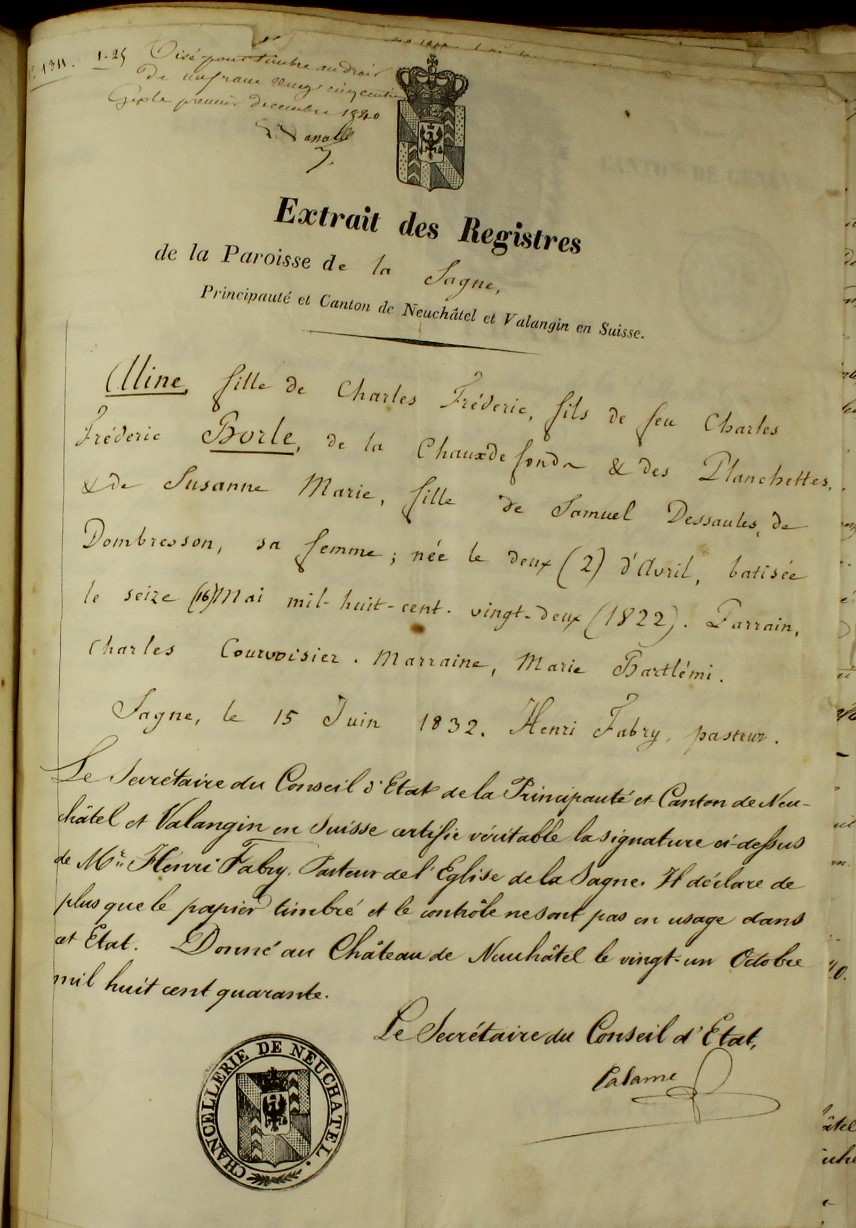 1311. 1.25 Visé pour timbre au droit
De un franc vingt cinq centimes
Gex le premier decembre 1840
Extrait des Registres
de la Paroisse de la Sagne,
Principauté et Canton de Neuchâtel et Valangin en Suisse.
Aline, fille de Charles Fréderic, fils de feu Charles
Fréderic Borle, de la Chauxdefonds & des Planchettes,
& de Susanne Marie, fille de Samuel Dessaules, de
Dombresson, sa femme; née le deux (2) d'Avril, batisée
le seize (16) Mai mil-huit-cent-vingt-deux (1822). Parrain,
Charles Courvoisier. Marraine, Marie Bartlémi.
Sagne, le 15 Juin 1832. Henri Fabry, pasteur.
Le Secrétaire du Conseil d'Etat de la Principauté et Canton de Neu-
châtel et Valangin en Suisse certifie véritable la signature ci-dessus
de Mr. Henri Fabry, Pasteur de l'Eglise de la Sagne. Il déclare de
plus que le papier timbré et le contrôle ne sont pas en usage dans
cet Etat. Donné au Château de Neuchâtel le vingt-un Octobre
mil huit cent quarante.
Le Secrétaire du Conseil d'Etat,
CHANCELLERIE DE NEUCHATEL.
CANTON DE GENÈVE